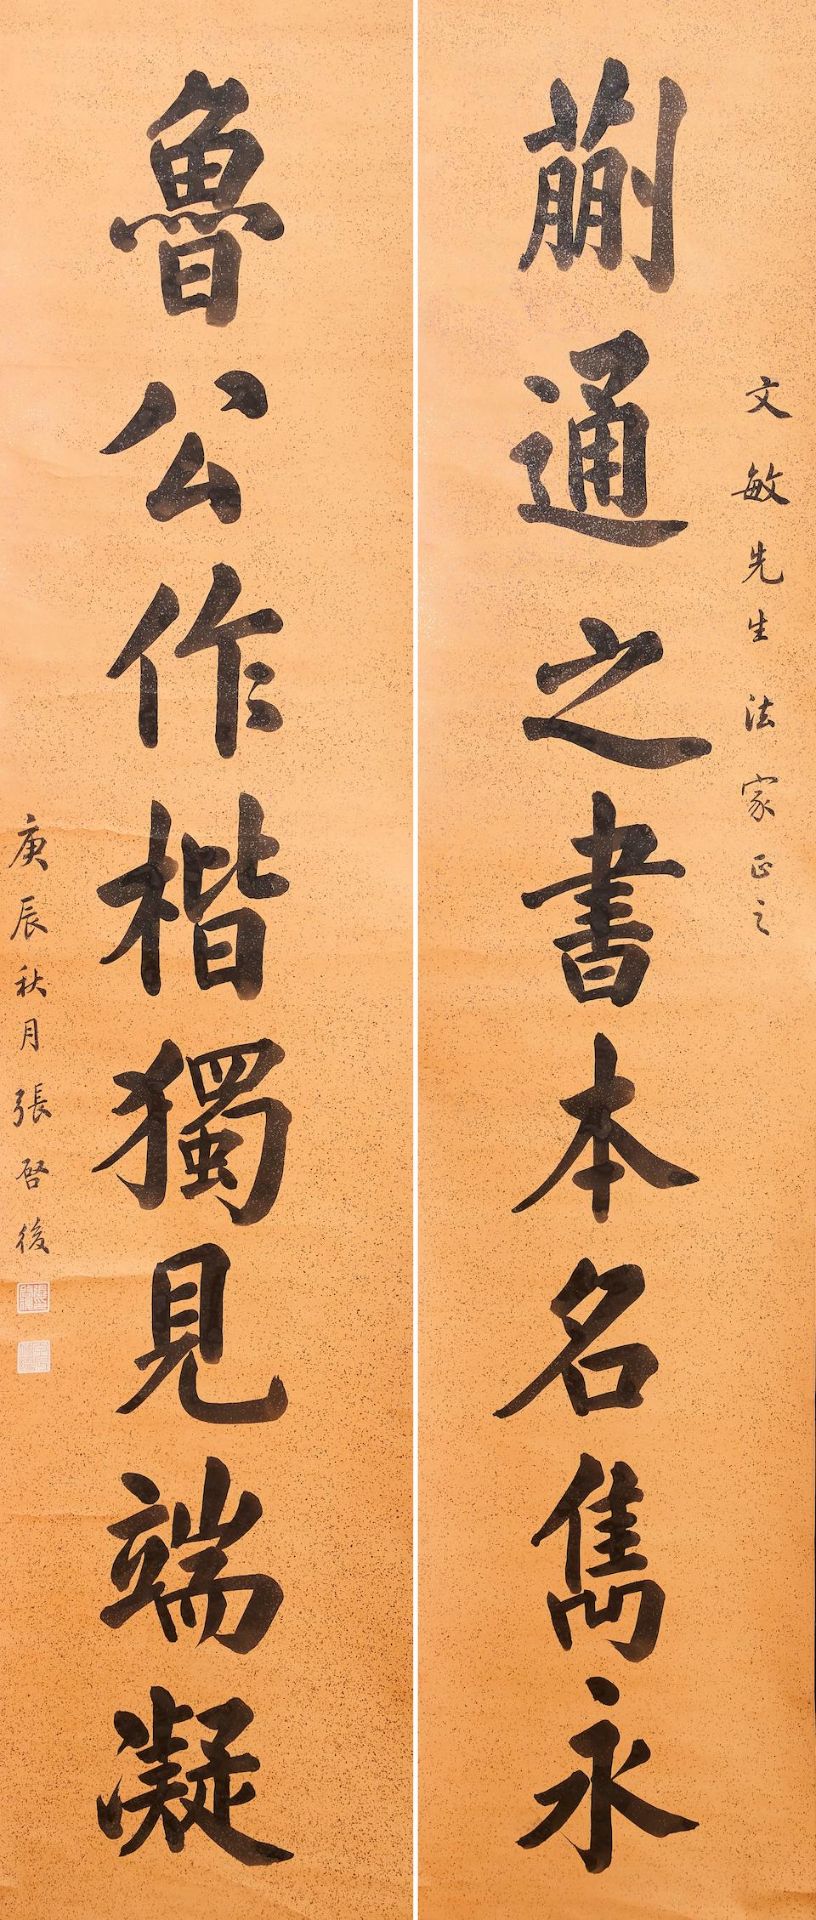 文敏先生法家正之
蒯通之書本名雋永
魯公作楷獨見端凝
庚辰秋月張啓後